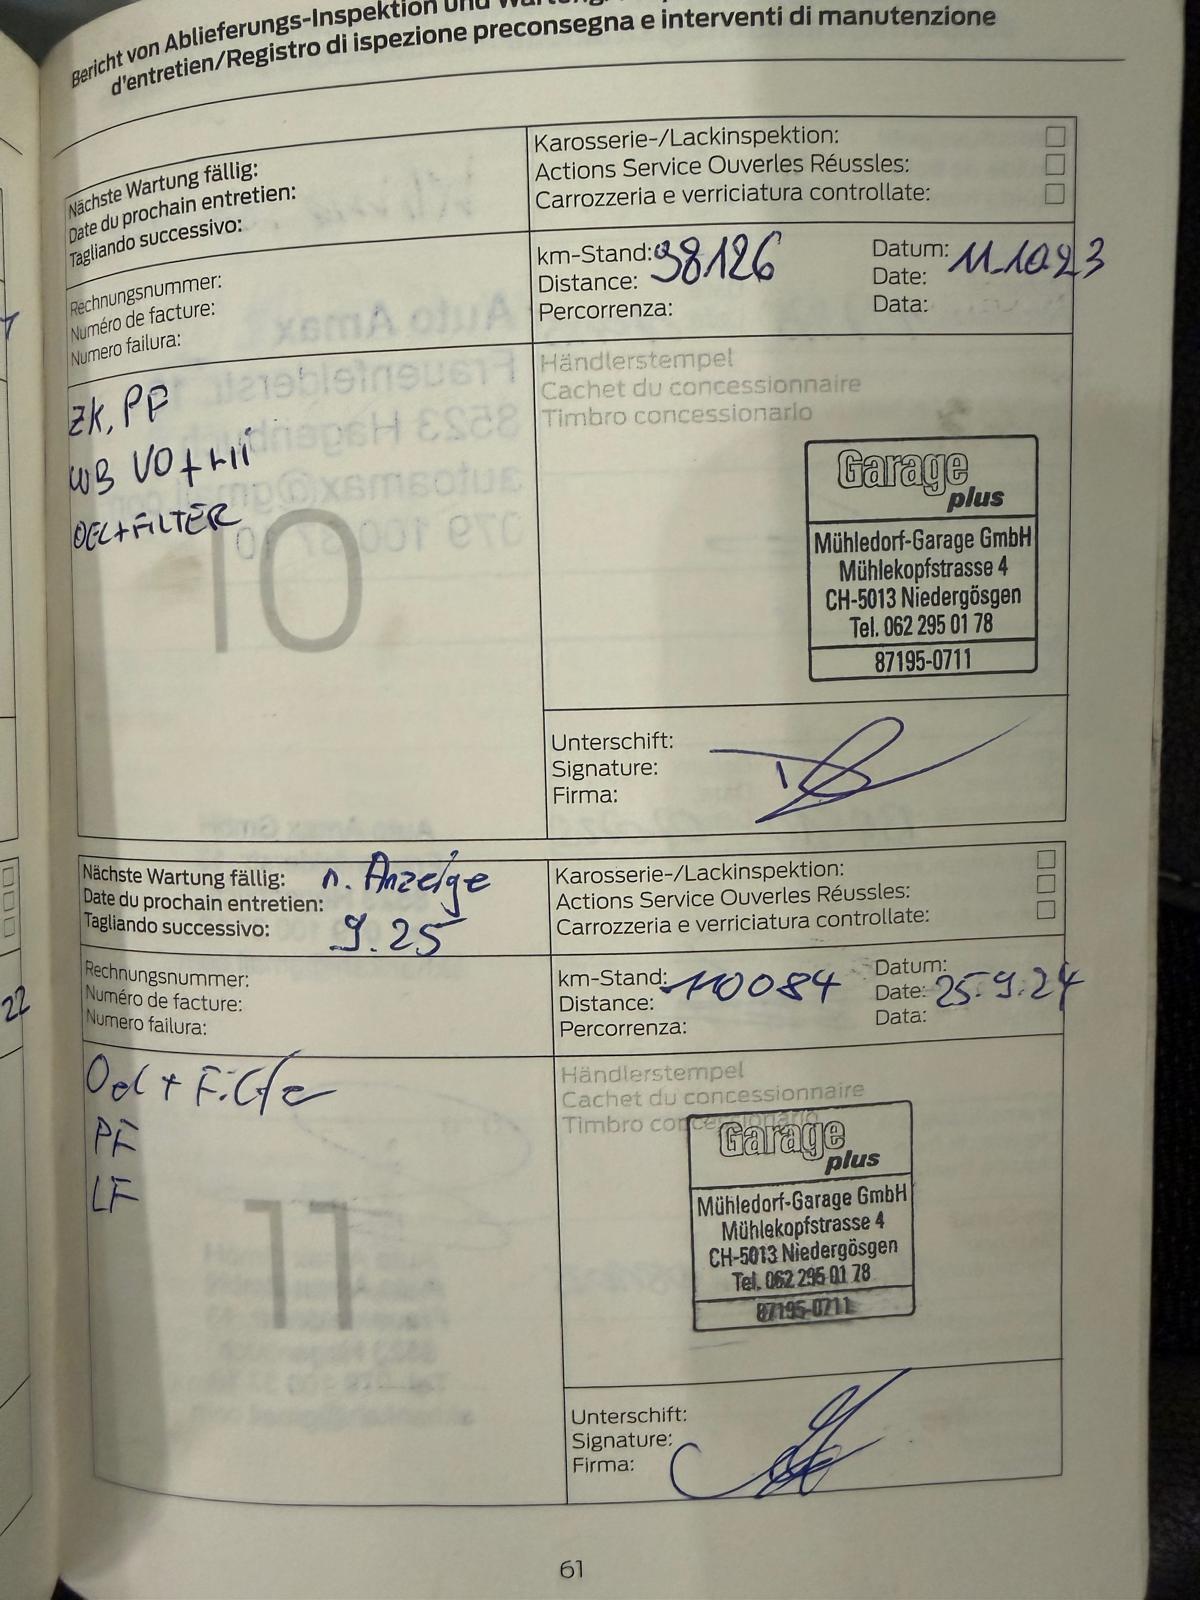 Bericht von Ablieferungs-Inspektion und
d'entretien/Registro di ispezione preconsegna e interventi di manutenzione
Nächste Wartung fällig:
Date du prochain entretien:
Tagliando successivo:
Karosserie-/Lackinspektion:
Actions Service Ouverles Réussles:
Carrozzeria e verriciatura controllate:
Rechnungsnummer:
Numéro de facture:
Numero failura:
km-Stand: 98126
Distance:
Percorrenza:
Datum: 11.10.23
Date:
Data:
ZK, PF
WB VO + HI
OEL+FILTER
10
Händlerstempel
Cachet du concessionnaire
Timbro concessionario
Garage
plus
Mühledorf-Garage GmbH
Mühlekopfstrasse 4
CH-5013 Niedergösgen
Tel. 062 295 01 78
87195-0711
Unterschift:
Signature:
Firma:
Nächste Wartung fällig: n. Anzeige
Date du prochain entretien:
Tagliando successivo: 9.25
Karosserie-/Lackinspektion:
Actions Service Ouverles Réussles:
Carrozzeria e verriciatura controllate:
Rechnungsnummer:
Numéro de facture:
Numero failura:
km-Stand: 110084
Distance:
Percorrenza:
Datum:
Date: 25.9.24
Data:
Oel + Filter
PF
LF
11
Händlerstempel
Cachet du concessionnaire
Timbro concessionario
Garage
plus
Mühledorf-Garage GmbH
Mühlekopfstrasse 4
CH-5013 Niedergösgen
Tel. 062 295 01 78
87195-0711
Unterschift:
Signature:
Firma:
22
61